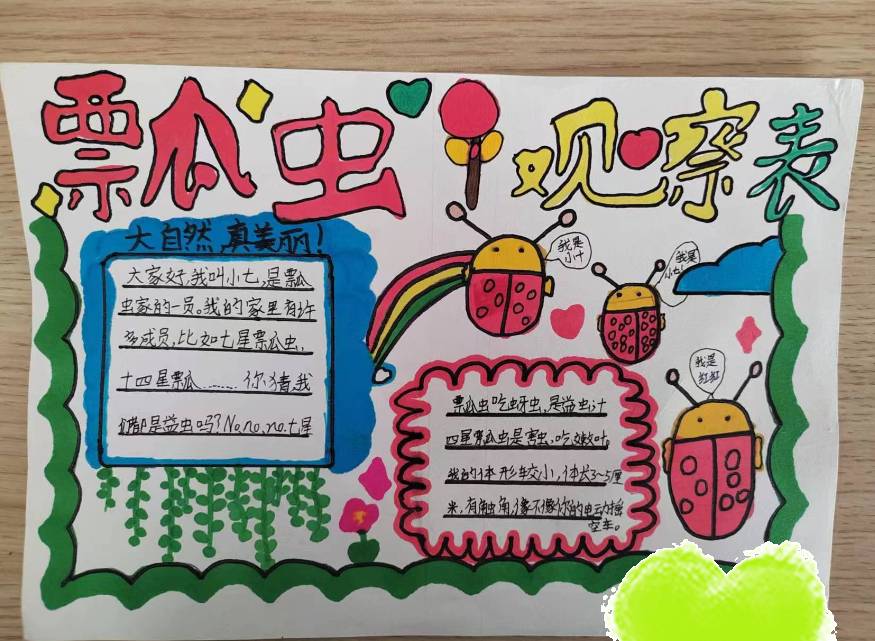 瓢瓜虫观察表
大自然真美丽!
大家好,我叫小七,是瓢瓜
虫家的一员。我的家里有许
多成员,比如七星瓢瓜虫,
十四星瓢瓜……你猜,我
们都是益虫吗?No,no,no.七星
我是
小十
我是
小七
我是
瓢瓜虫吃蚜虫,是益虫,十
四星瓢瓜虫是害虫,吃嫩叶。
我的体形较小,体长3~5厘
米,有触角,像不像你的电动摇
空车。